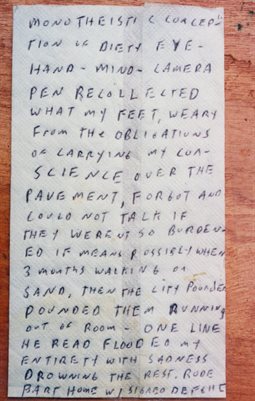 MONOTHEISTIC CONCEP-
TION OF DIETY EYE-
HAND-MIND-CAMERA
PEN RECOLLECTED
WHAT MY FEET, WEARY
FROM THE OBLIGATIONS
OF CARRYING MY CON-
SCIENCE OVER THE
PAVEMENT, FORGOT AND
COULD NOT TALK IF
THEY WERENT SO BURDEN-
ED IF MEANS POSSIBLY WHEN
3 MONTHS WALKING ON
SAND, THEN THE CITY POUNDED
POUNDED THEM RUNNING
OUT OF ROOM- ONE LINE
HE READ FLOODED MY
ENTIRETY WITH SADNESS
DROWNING THE REST. RODE
BART HOME W/ SIGNED